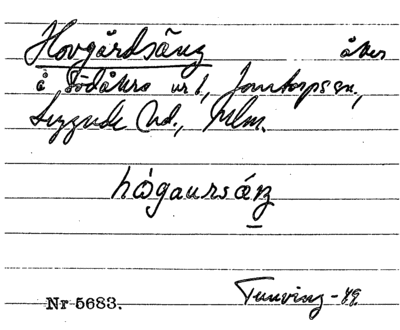 Hovgårdsäng åker
å Södåkra nr 1, Jonstorps sn,
Luggude hd., Mlm.
hógaursǽŋ
Nr 5683.
Tunving - 49.